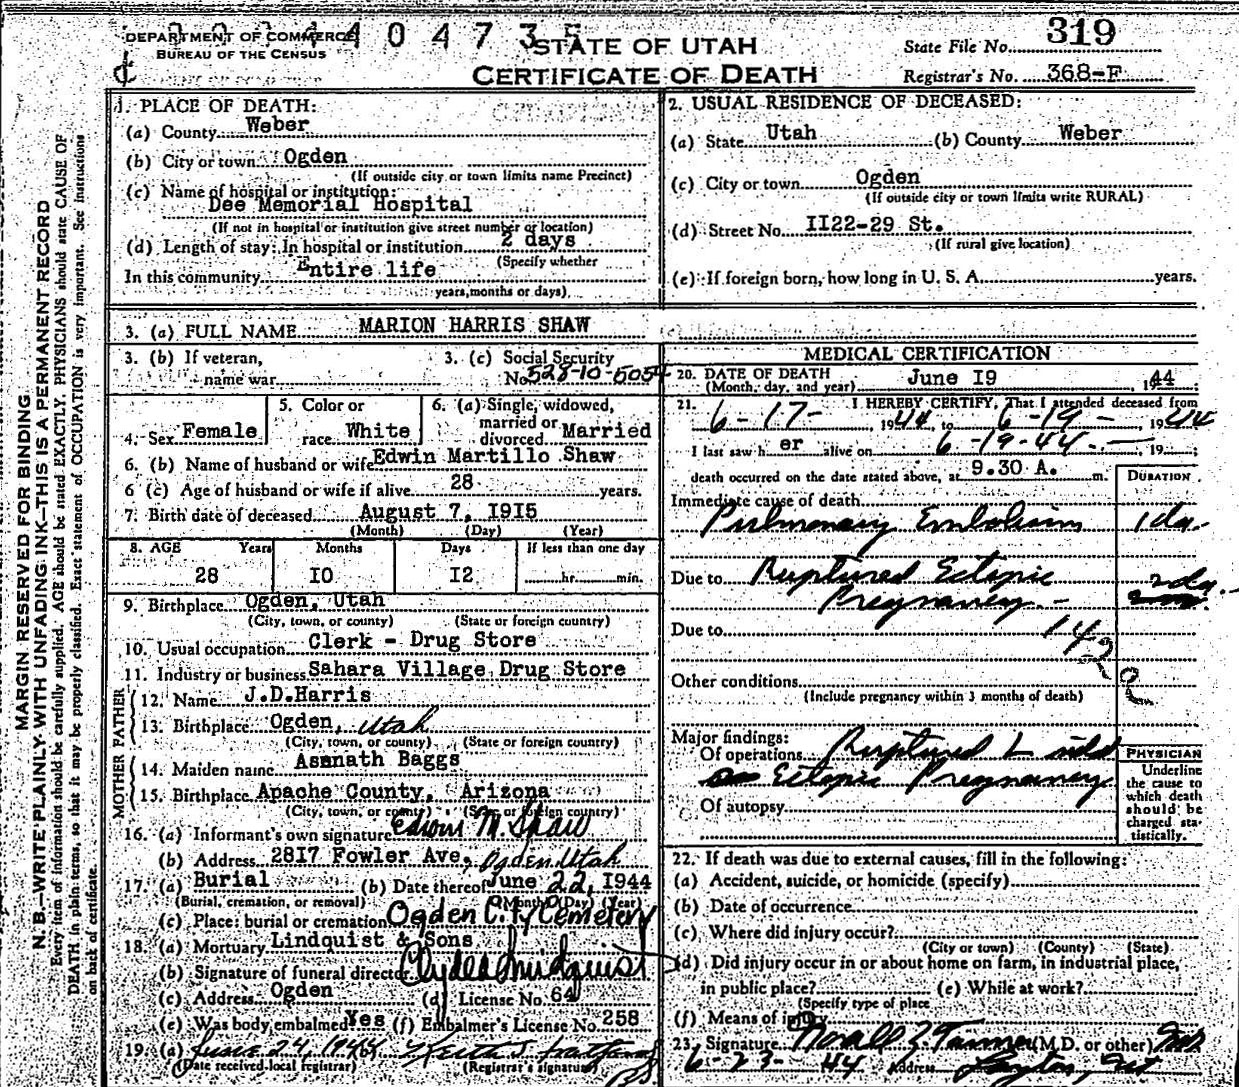 DEPARTMENT OF COMMERCE
BUREAU OF THE CENSUS
STATE OF UTAH
CERTIFICATE OF DEATH
State File No. 319
Registrar's No. 368-F
MARGIN RESERVED FOR BINDING
N. B.—WRITE PLAINLY WITH UNFADING INK—THIS IS A PERMANENT RECORD
Every item of information should be carefully supplied. AGE should be stated EXACTLY. PHYSICIANS should state CAUSE OF
DEATH in plain terms, so that it may be properly classified. Exact statement of OCCUPATION is very important. See instructions
on back of certificate.
1. PLACE OF DEATH:
(a) County Weber
(b) City or town Ogden
(If outside city or town limits name Precinct)
(c) Name of hospital or institution:
Dee Memorial Hospital
(If not in hospital or institution give street number or location)
(d) Length of stay: In hospital or institution 2 days
(Specify whether
In this community Entire life
years, months or days)
2. USUAL RESIDENCE OF DECEASED:
(a) State Utah (b) County Weber
(c) City or town Ogden
(If outside city or town limits write RURAL)
(d) Street No. II22-29 St.
(If rural give location)
(e) If foreign born, how long in U. S. A. years.
3. (a) FULL NAME MARION HARRIS SHAW
3. (b) If veteran,
name war
3. (c) Social Security
No. 528-10-5054
4. Sex Female
5. Color or
race White
6. (a) Single, widowed,
married or
divorced Married
6. (b) Name of husband or wife Edwin Martillo Shaw
6 (c) Age of husband or wife if alive 28 years.
7. Birth date of deceased August 7, I9I5
(Month) (Day) (Year)
8. AGE Years Months Days If less than one day
28 I0 I2 hr. min.
9. Birthplace Ogden, Utah
(City, town, or county) (State or foreign country)
10. Usual occupation Clerk - Drug Store
11. Industry or business Sahara Village Drug Store
FATHER
12. Name J.D.Harris
13. Birthplace Ogden, Utah
(City, town, or county) (State or foreign country)
MOTHER
14. Maiden name Asnnath Baggs
15. Birthplace Apache County, Arizona
(City, town, or county) (State or foreign country)
16. (a) Informant's own signature Edwin M Shaw
(b) Address 28I7 Fowler Ave, Ogden Utah
17. (a) Burial (b) Date thereof June 22, I944
(Burial, cremation, or removal) (Month) (Day) (Year)
(c) Place: burial or cremation Ogden City Cemetery
18. (a) Mortuary Lindquist & Sons
(b) Signature of funeral director Clyde Lindquist
(c) Address Ogden (d) License No. 64
(e) Was body embalmed Yes (f) Embalmer's License No. 258
19. (a) June 24, 1944 (b)
(Date received local registrar) (Registrar's signature)
MEDICAL CERTIFICATION
20. DATE OF DEATH
(Month, day, and year) June I9, 1944
21. I HEREBY CERTIFY, That I attended deceased from
6-17-, 1944, to 6-19-, 1944
I last saw her alive on 6-19-44-, 19;
death occurred on the date stated above, at 9.30 A. m.
DURATION
Immediate cause of death
Pulmonary Embolism 1 da.
Due to Ruptured Ectopic 2 da.
Pregnancy.-
Due to 142
Other conditions
(Include pregnancy within 3 months of death)
Major findings:
Of operations Ruptured L
Ectopic Pregnancy
Of autopsy
PHYSICIAN
Underline
the cause to
which death
should be
charged sta-
tistically.
22. If death was due to external causes, fill in the following:
(a) Accident, suicide, or homicide (specify)
(b) Date of occurrence
(c) Where did injury occur?
(City or town) (County) (State)
(d) Did injury occur in or about home on farm, in industrial place,
in public place? (e) While at work?
(Specify type of place
(f) Means of injury
23. Signature Noall Z. Tanner (M.D. or other) MD
6-23-44 Address Layton, Ut